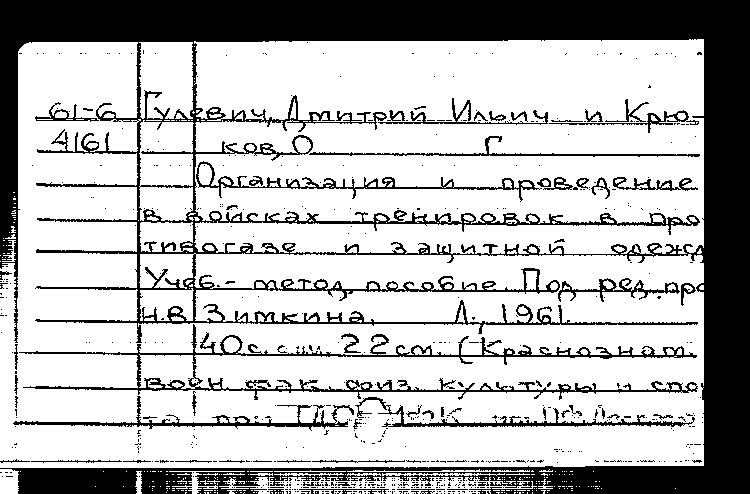 61-6 Гулевич, Дмитрий Ильич и Крю-
4161 ков, О Г
Организация и проведение
в войсках тренировок в про
тивогазе и защитной одежд
Учеб.- метод. пособие. Под ред. про
Н.В Зимкина. Л., 1961.
40 с. с илл. 22 см. (Краснознам.
воен. фак. физ. культуры и спор
та при ГДОИФК им. П.Ф. Лесгафта